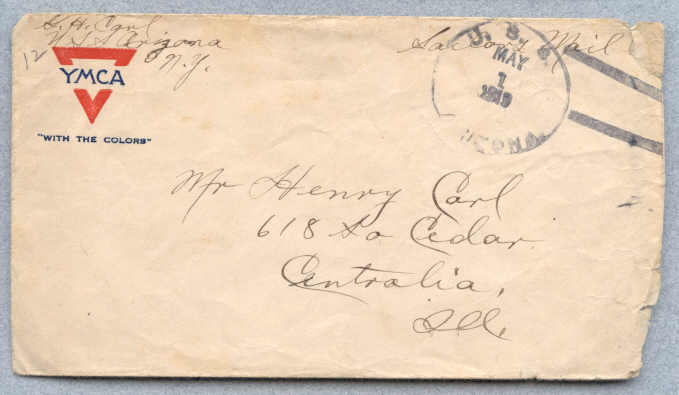 H. Carl
U.S.S. Arizona
N.Y.
12
Sailors Mail
YMCA
"WITH THE COLORS"
U. S. S.
MAY
1
1919
Mr Henry Carl
618 So Cedar
Centralia,
Ill.